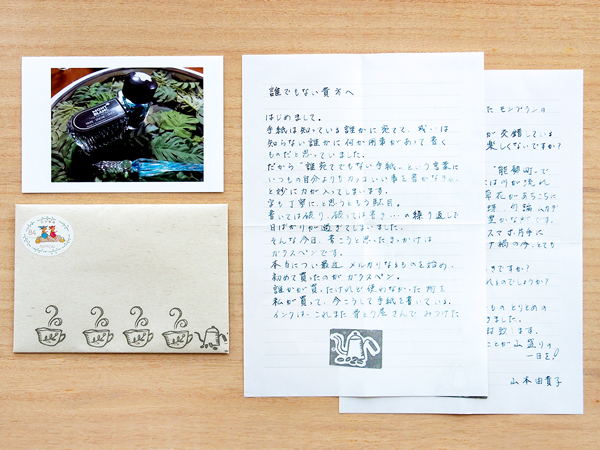 誰でもない貴方へ
はじめまして。
手紙は知っている誰かに宛てて、或いは
知らない誰かに何か用事があって書く
ものだと思っていました。
だから"誰宛でもない手紙"という言葉に
いつもの自分よりもカッコいい事を書かなきゃ
と妙に力が入ってしまいます。
字も丁寧に、と思うともう駄目。
書いては破り、破っては書き…の繰り返しで
日ばかりが過ぎてしまいました。
そんな今日、書こうと思ったきっかけは
ガラスペンです。
本当につい最近、メルカリなるものを始め、
初めて買ったのがガラスペン。
誰かが買ったけれど使わなかった物を
私が買って、今こうして手紙を書いている。
インクは、これまた骨とう屋さんでみつけた
た モンブランの
が交錯している
楽しくないですか?
"能勢町"で
は川が流れ
草花があちこちに
スマホ片手に
きですか?
れるのでしょうか?
もの とりとめの
きました。
致します。
ことが山盛りの
一日を!
山本由貴子